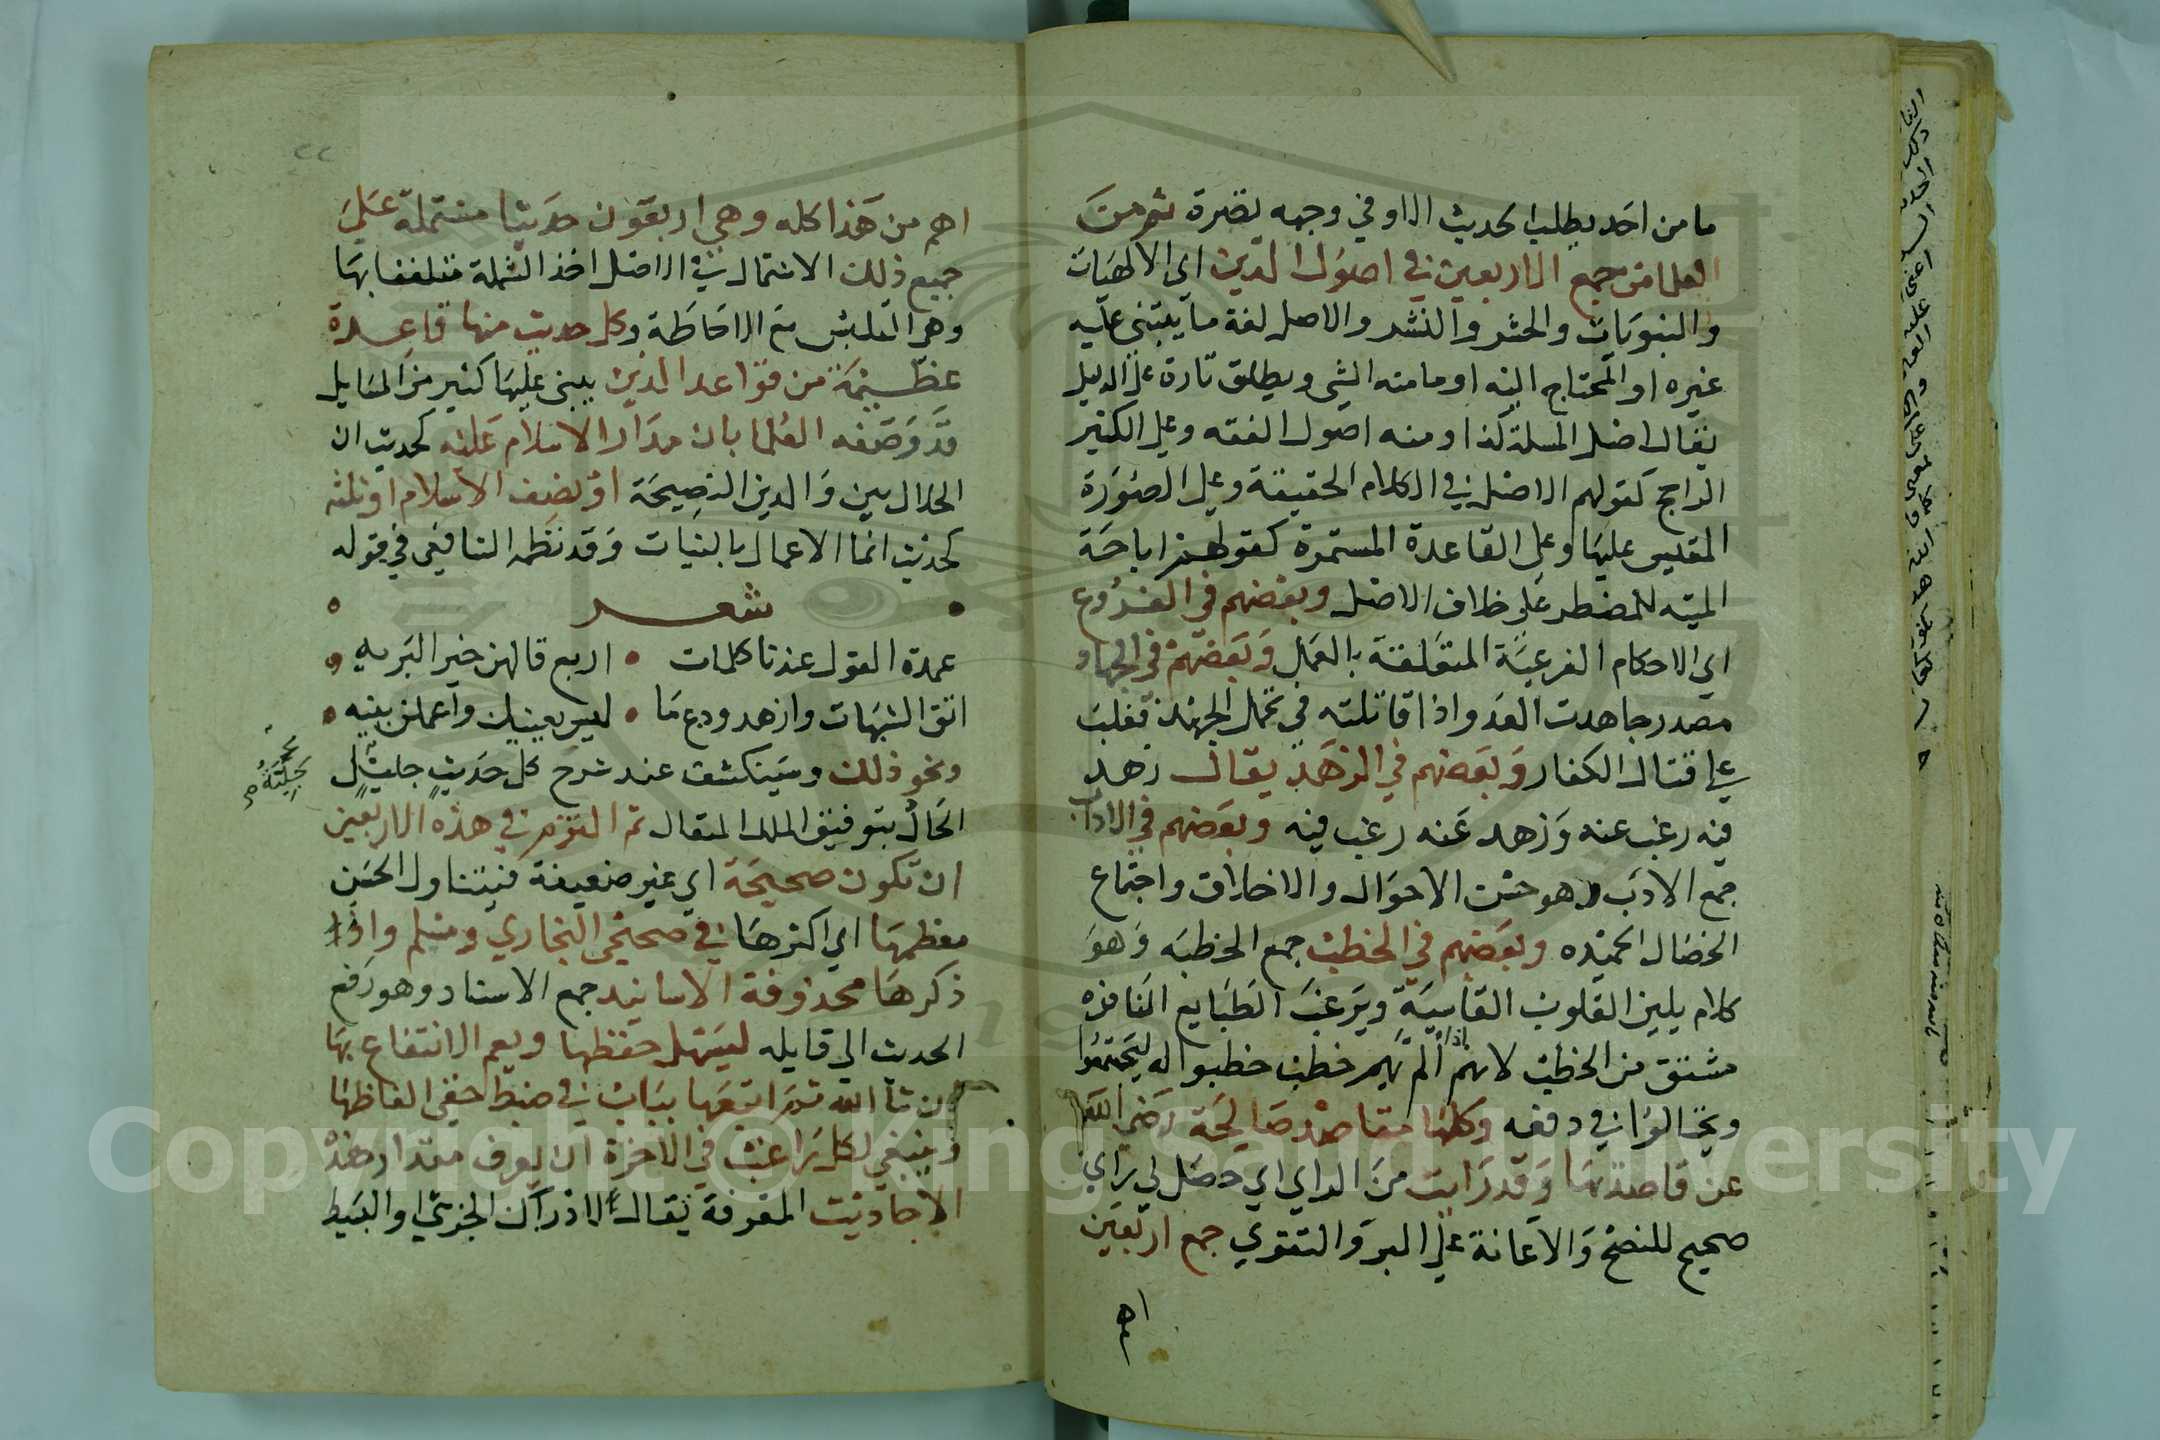 ما من احد يطلب الحديث الا وفي وجهه نضرة ثم من
العلما من جمع الاربعين في اصول الدين اي الالهيات
والنبويات والحشر والنشر والاصل لغة ما يبتنى عليه
غيره او المحتاج اليه او ما منه الشي ويطلق تارة على الدليل
يقال اصل المسلة كذا ومنه اصول الفقه وعلى الكثير
الراجح كقولهم الاصل في الكلام الحقيقة وعلى الصورة
المقيس عليها وعلى القاعدة المستمرة كقولهم اباحة
الميته للمضطر على خلاف الاصل وبعضهم في الفروع
اي الاحكام الفرعية المتعلقة بالعمل وبعضهم في الجهاد
مصدر جاهدت العدو اذا قاتلته في تحمل الجهد فغلب
على قتال الكفار وبعضهم في الزهد يقال زهد
فيه رغب عنه وزهد عنه رغب فيه وبعضهم في الاداب
جمع الادب وهو حسن الاحوال والاخلاق واجتماع
الخصال الحميده وبعضهم في الخطب جمع الخطبه وهو
كلام يلين القلوب القاسية ويرغب الطبايع النافره
مشتق من الخطب لانهم اذا الم بهم خطب خطبوا له ليجتمعوا
ويحتالوا في دفعه وكلها مقاصد صالحة رضي الله
عن قاصديها وقد رايت من الراي اي حصل لي راي
صحيح للنصح والاعانة على البر والتقوي جمع اربعين
اهم
٢٢
اهم من هذا كله وهي اربعون حديثا مشتملة على
جميع ذلك الاشتمال في الاصل اخذ الشملة متلففا بها
وهو التلبس مع الاحاطة وكل حديث منها قاعدة
عظيمة من قواعد الدين يبنى عليها كثير من المسايل
قد وصفه العلما بان مدار الاسلام عليه كحديث ان
الحلال بين والدين النصيحة او نصف الاسلام او ثلثه
كحديث انما الاعمال بالنيات وقد نظمه الشافعي في قوله
شعر
عمدة القول عندنا كلمات • اربع قالهن خير البريه
اتق الشبهات وازهد ودع ما • ليس يعنيك واعملن بنيه
ونحو ذلك وسينكشف عند شرح كل حديث جليل
الحال بتوفيق الملك المتعال ثم التزم في هذه الاربعين
ان تكون صحيحة اي غير ضعيفة فيتناول الحسن
معظمها اي اكثرها في صحيحي البخاري ومسلم واذا
ذكرها محذوفة الاسانيد جمع الاسناد وهو رفع
الحديث الى قايله ليسهل حفظها ويعم الانتفاع بها
ان شا الله ثم اتبعها بباب في ضبط خفي الفاظها
وينبغي لكل راغب في الاخرة ان يعرف مقدار هذه
الاحاديث المعرفة يقال لادراك الجزئي او البسيط